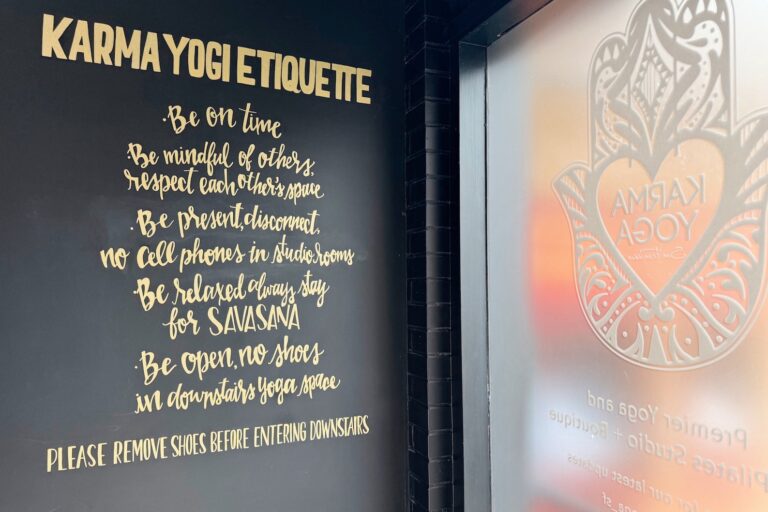 KARMA YOGI ETIQUETTE
·Be on time
·Be mindful of others,
respect each other's space
·Be present, disconnect,
no cell phones in studio rooms
·Be relaxed always stay
for SAVASANA
·Be open, no shoes
in downstairs yoga space
PLEASE REMOVE SHOES BEFORE ENTERING DOWNSTAIRS
KARMA
YOGA
San Francisco
Premier Yoga and
Pilates Studio + Boutique
for our latest updates